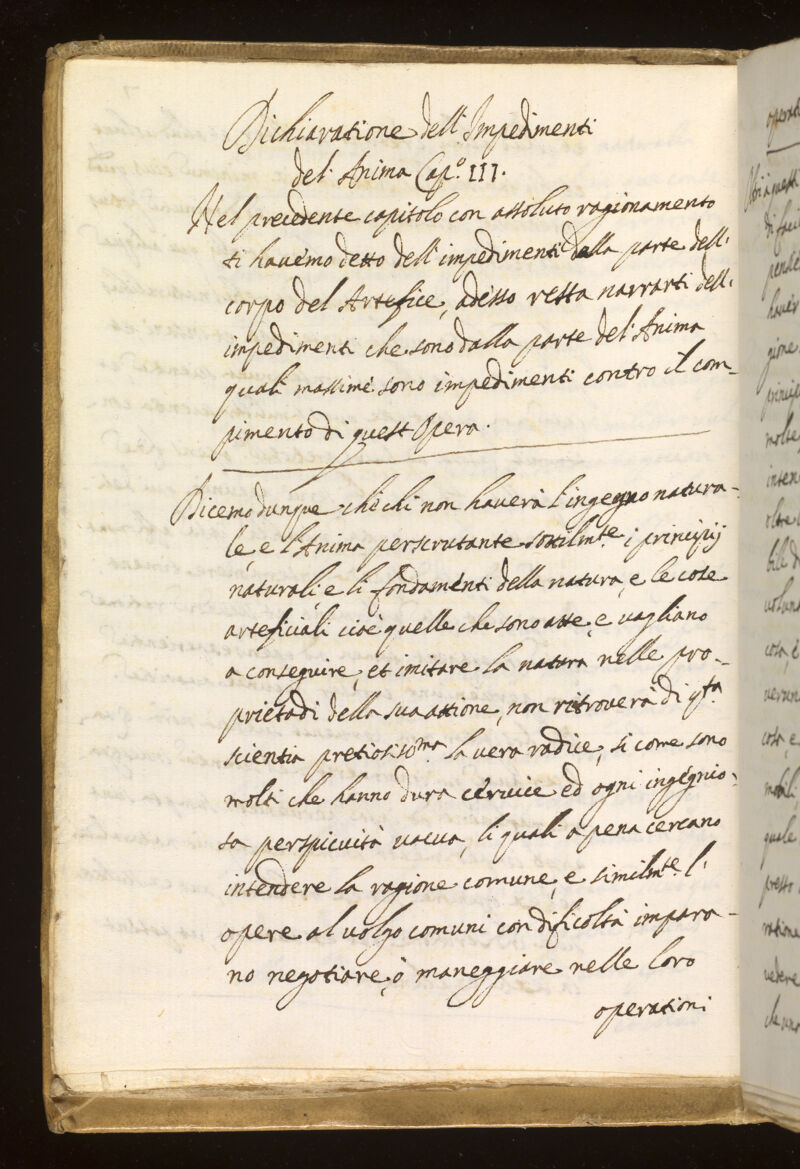 Dichiaratione dell' Impedimenti
del' Anima Cap.º III.
Nel precedente capitolo con assoluto ragionamento
ti havemo detto dell' impedimenti dalla parte dell'
corpo del Artefice, adesso resta narrarti dell'
impedimenti che sono dalla parte del' Anima
quali massime sono impedimenti contro il com-
pimento di quest Opera.
Dicemo dunque che chi non haverà l'ingegno natura-
le, e l'Anima perscrutante sottilmte. i principij
naturali, e li fondamenti della natura, e le cose
arteficiali cioè quelle che sono atte, e vagliano
a conseguire, et imitare la natura nelle pro-
prietadi della sua attione, non ritroverà di qsta.
scientia pretiosissma. la vera radice, si come sono
molti che hanno dura cervice ed ogni ingegnio-
sa perspicuità vacua, li quali a pena cercano
intendere la ragione comune, e similmte. l'
opere al volgo comuni con dificoltà impara-
no negotiare, ò maneggiare nelle loro
operationi
operati
pende
haver
gione
princip
molte
inten
oltre
volunt
cosa, è
cosa, e
quale
presso
ratione
vedere